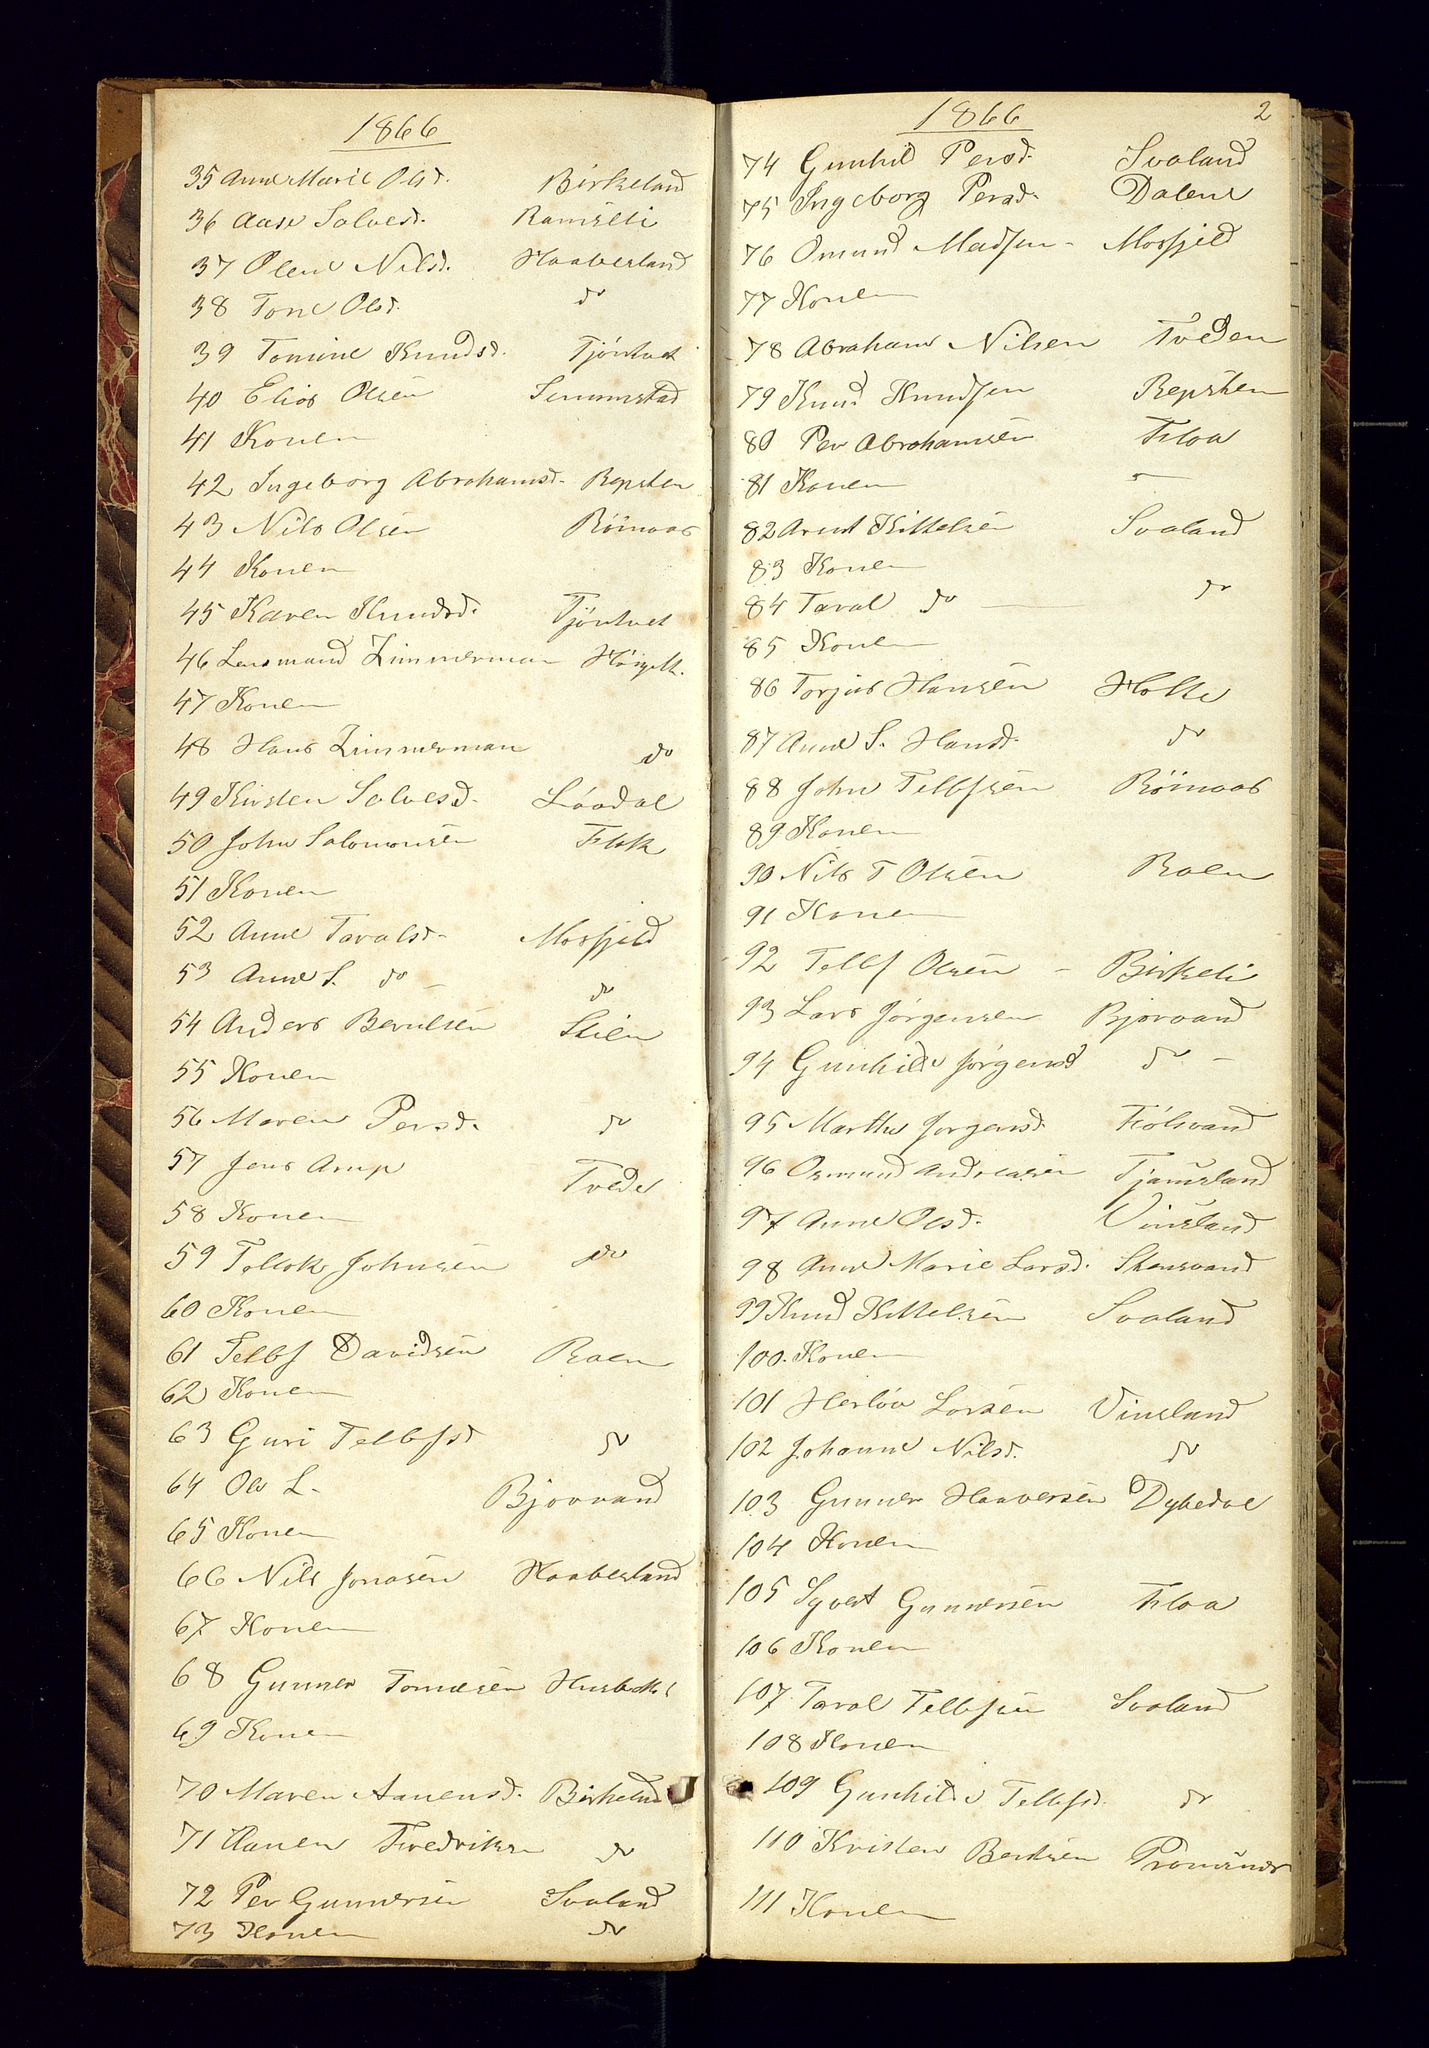 1866
35 Anne Marie Olsd. Birkeland
36 Aase Salvesd. Ramseli
37 Olene Nilsd. Haaberland
38 Tone Olsd. do
39 Tomine Knudsd. Tjöntvet
40 Elias Olsen Senumstad
41 Konen
42 Ingeborg Abrahamsd. Repsten
43 Nils Olsen Röinaas
44 Konen
45 Karen Knudsd. Tjöntvet
46 Lensmand Zimmerman
47 Konen
48 Hans Zimmerman do
49 Kirsten Salvesd. Löodal
50 John Salomonsen Flak
51 Konen
52 Anne Taralsd. Mosfjeld
53 Anne S. do - do
54 Anders Berulsen Stien
55 Konen
56 Maren Persd. do
57 Jens Arup Tvede
58 Konen
59 Tellak Johnsen do
60 Konen
61 Tellefs Davidsen Roen
62 Konen
63 Guri Tellefsd do
64 Ole L. Bjorvand
65 Konen
66 Nils Jonasen Haaberland
67 Konen
68 Gunner Tomesen
69 Konen
70 Maren Aanensd. Birkeland
71 Aanen Fredriksen do
72 Per Gunnersen Svaland
73 Konen do
1866 2
74 Gunhild Persd. Svaland
75 Ingeborg Persd. Dalene
76 Omund Madsen - Mosfjeld
77 Konen
78 Abraham Nilsen Tveden
79 Knud Knudsen Repsten
80 Per Abrahamsen Floa
81 Konen -
82 Arent Kittelsen Svaland
83 Konen
84 Taral do - do
85 Konen
86 Torjus Hansen Holte
87 Anne S. Hansd. do
88 John Tellefsen Röinaas
89 Konen
90 Nils T Olsen Roen
91 Konen
92 Tellef Olsen - Birkeli
93 Lars Jörgensen Bjorvand
94 Gunhilde Jörgensd do -
95 Marthe Jorgensd. Fiölsvand
96 Osmund Andreasen Tjamsland
97 Anne Olsd. Vinsland
98 Anne Marie Larsd. Stensvand
99 Knud Kittelsen Svaland
100. Konen
101 Herlöv Larsen Vinsland
102 Johanne Nilsd. do
103 Gunner Haaversen Dybedal
104 Konen
105 Syvert Gunnersen Floa
106 Konen
107 Taral Tellefsen Svaland
108 Konen
109 Gunhilde Tellefsd. do
110 Kristen Bentsen
111 Konen